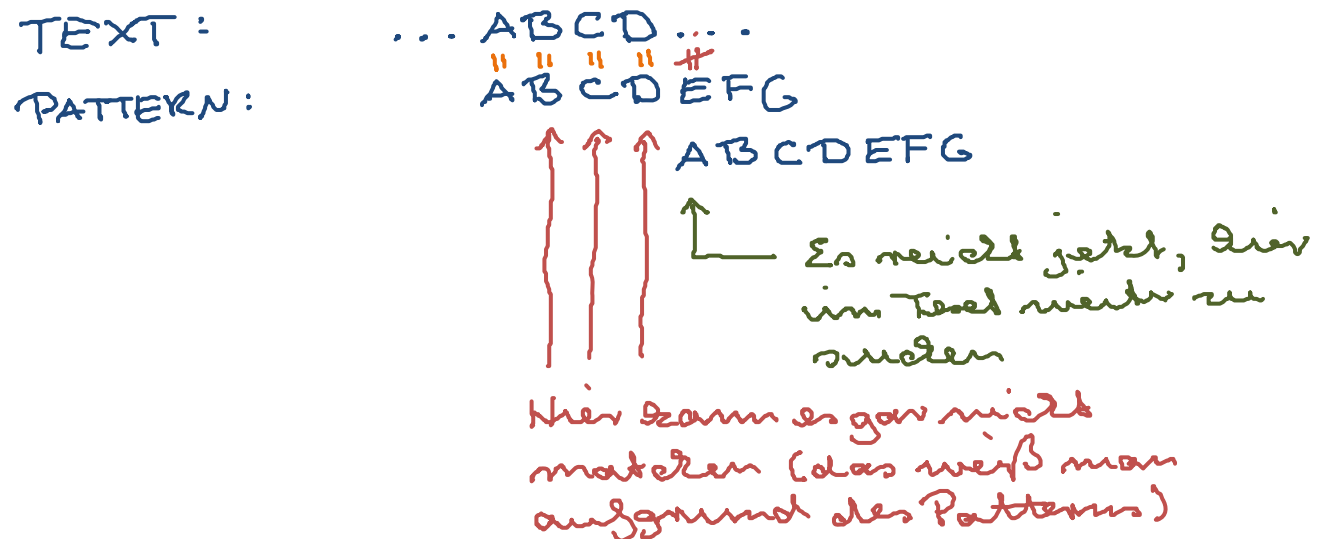 TEXT: ... ABCD ....
" " " "
PATTERN: ABCDEFG
ABCDEFG
Es reicht jetzt, hier
im Text weiter zu
suchen
Hier kann es gar nicht
matchen (das weiß man
aufgrund des Patterns)